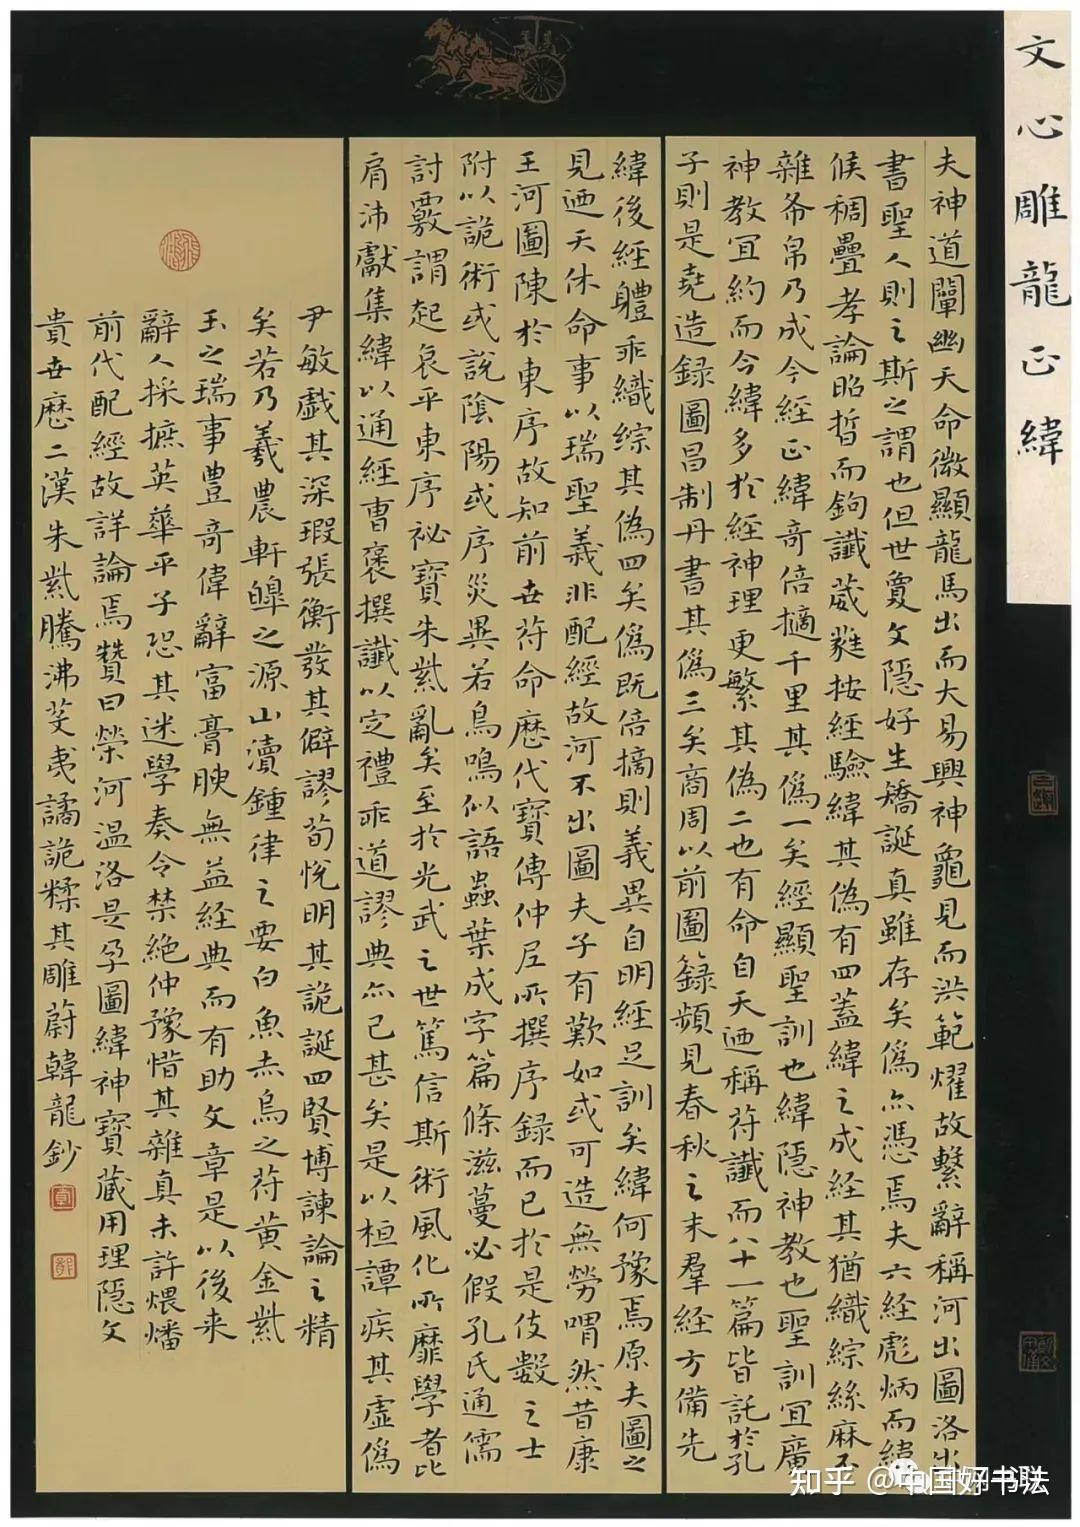 文心雕龍正緯
夫神道闡幽天命微顯龍馬出而大易興神龜見而洪範燿故繫辭稱河出圖洛出
書聖人則之斯之謂也但世敻文隱好生矯誕真雖存矣僞亦憑焉夫六経彪炳而緯
候稠疊孝論昭晢而鉤讖葳蕤按経驗緯其偽有四蓋緯之成経其猶織綜絲麻不
雜布帛乃成今経正緯奇倍擿千里其僞一矣經顯聖訓也緯隱神教也聖訓宜廣
神教宜約而今緯多於経神理更繁其偽二也有命自天迺稱符讖而八十一篇皆託於孔
子則是堯造録圖昌制丹書其僞三矣商周以前圖籙頻見春秋之末羣経方備先
緯後経軆乖織综其偽四矣僞既倍摘則義異自明経足訓矣緯何豫焉原夫圖之
見迺天休命事以瑞聖義非配經故河不出圖夫子有歎如或可造無勞喟然昔康
王河圖陳於東序故知前世符命歴代寶傳仲尼所撰序録而已於是伎數之士
附以詭術或説陰陽或序災異若鳥鳴似語蟲葉成字篇條滋蔓必假孔氏通儒
討覈謂起哀平東序祕寶朱紫亂矣至於光武之世篤信斯術風化所靡學者比
肩沛獻集緯以通經曹褒撰讖以定禮乖道謬典亦已甚矣是以桓譚疾其虛僞
尹敏戲其深瑕張衡發其僻謬荀悅明其詭誕四賢博諫論之精
矣若乃羲農軒皞之源山瀆鍾律之要白魚赤烏之符黄金紫
玉之瑞事豊奇偉辭富膏腴無益経典而有助文章是以後来
辭人採摭英華平子恐其迷學奏令禁絶仲豫惜其雜真未許煨燔
前代配經故詳論焉贊曰榮河温洛是孕圖緯神寶藏用理隱文
貴世歴二漢朱紫騰沸芟夷譎詭糅其雕蔚韓龍鈔
知乎 @中国好书法